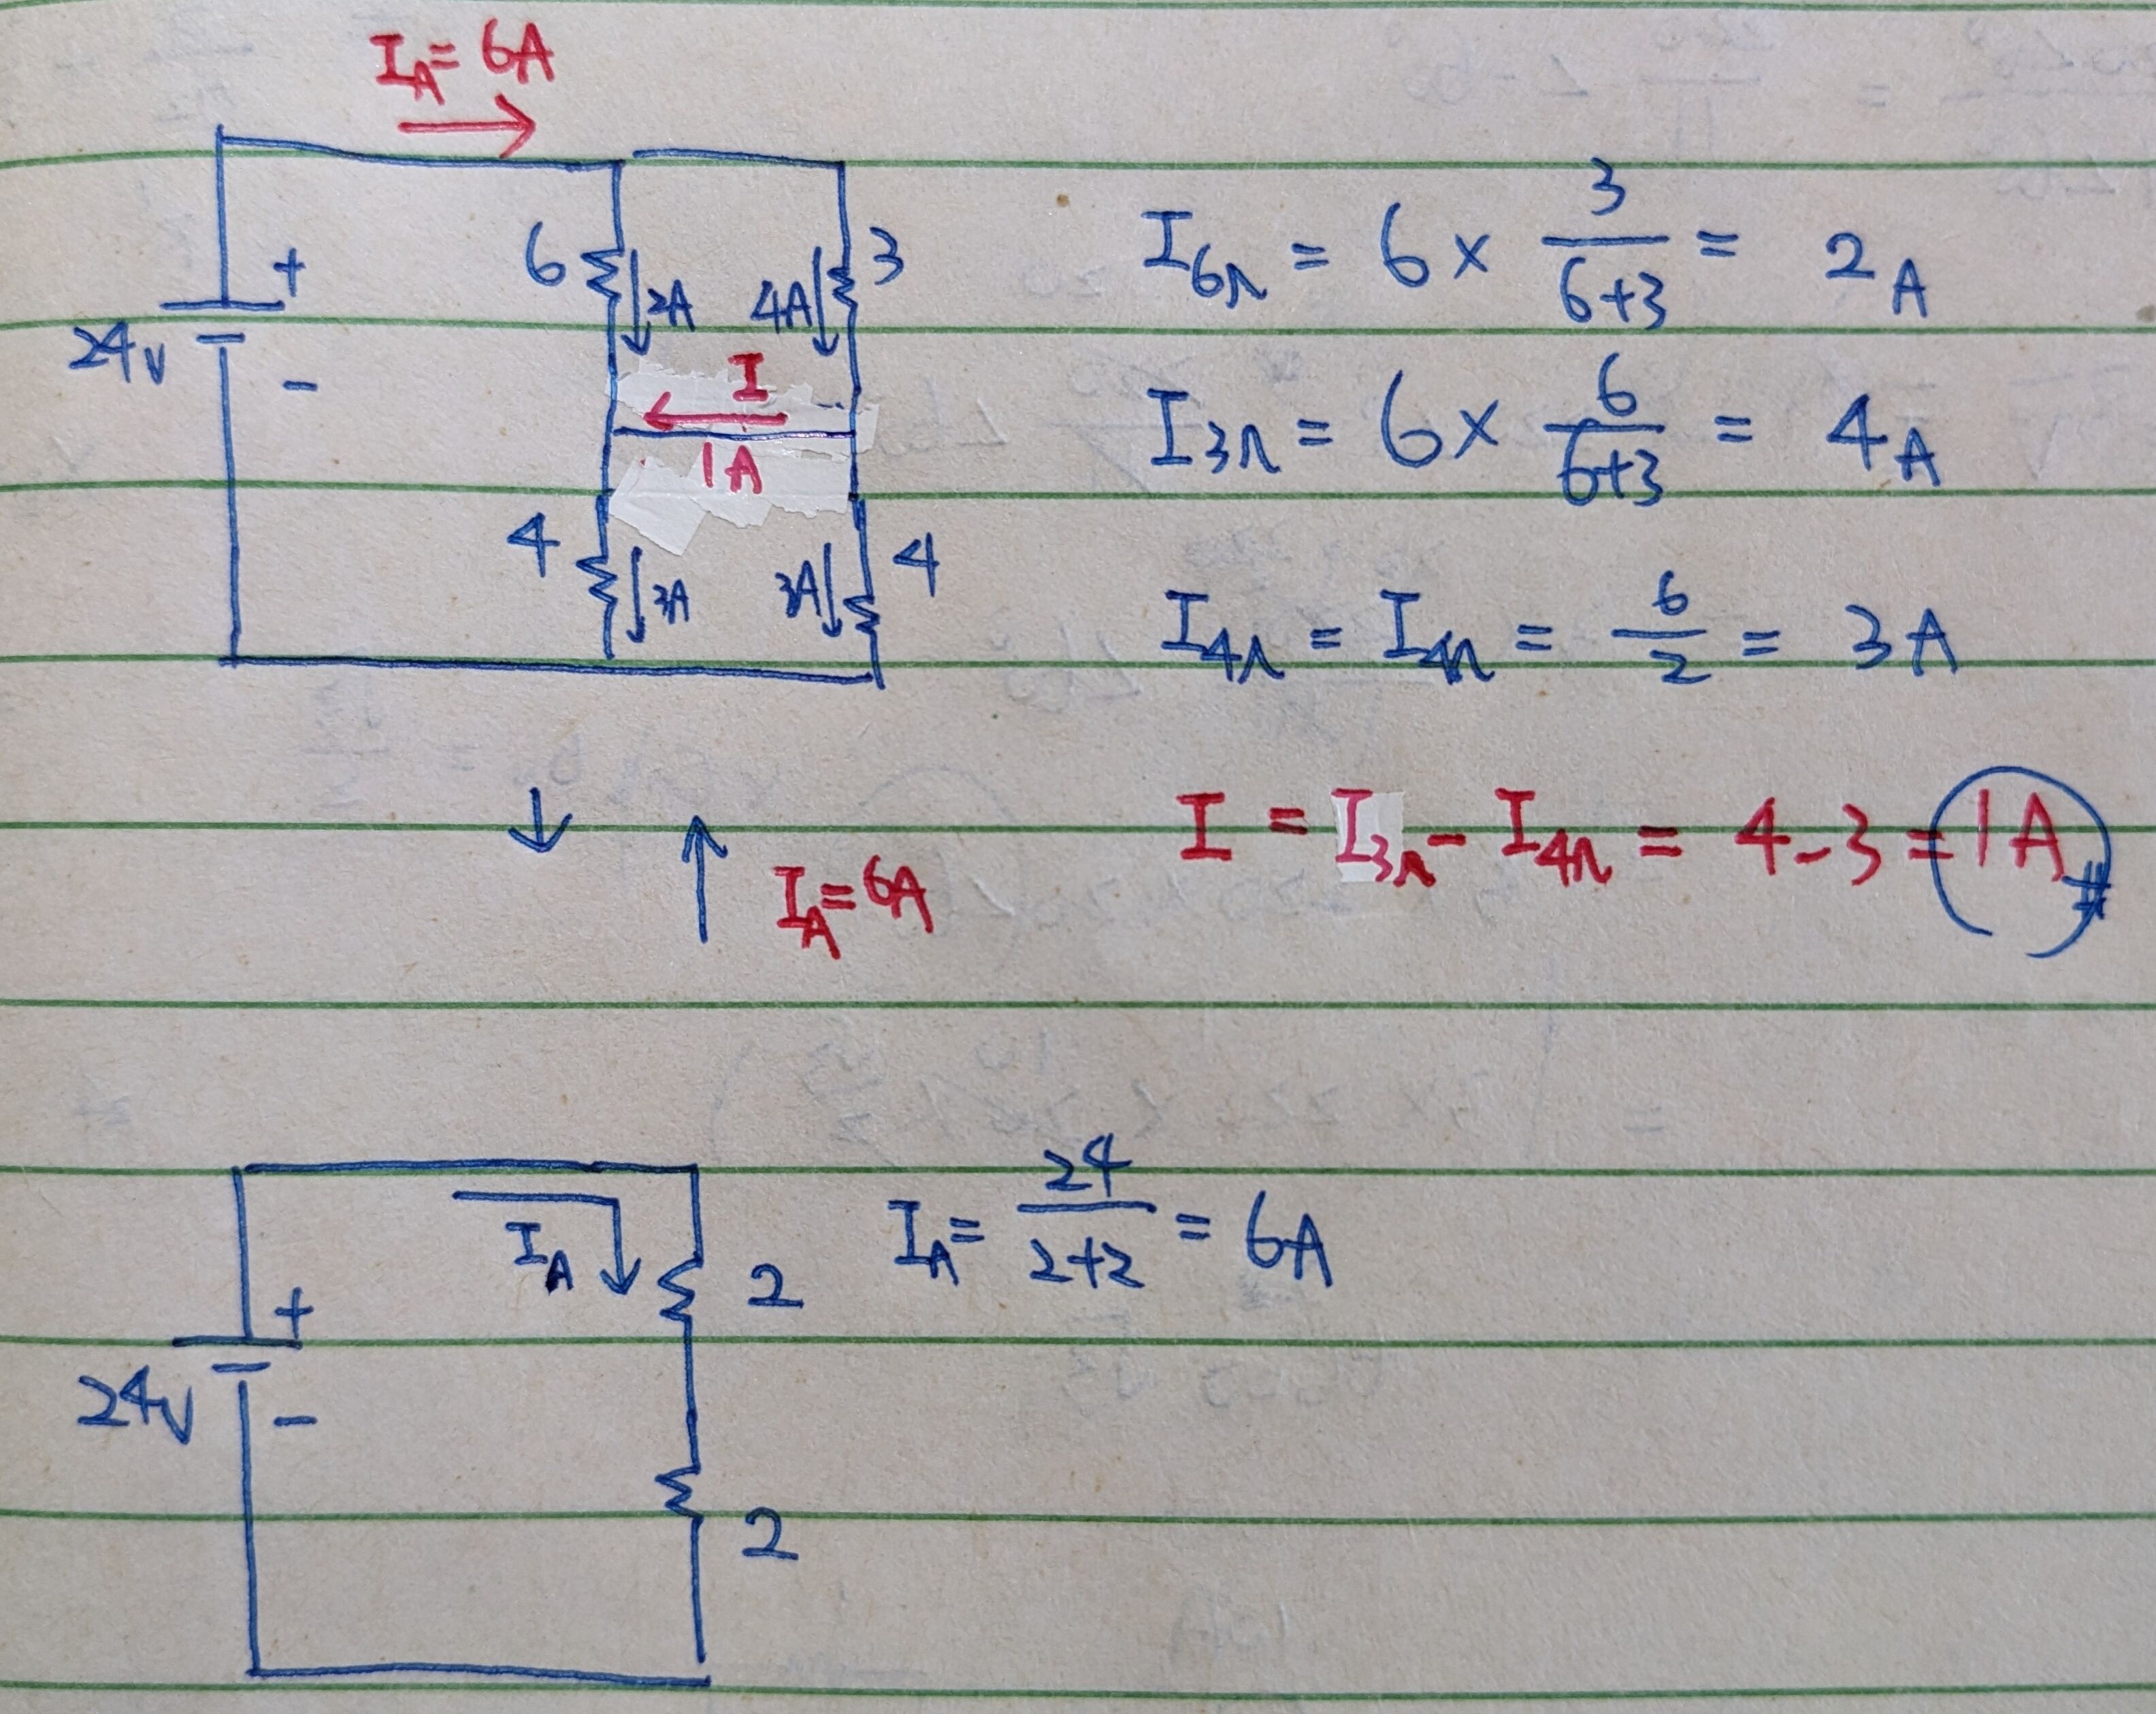 I_A = 6A
6
3
2A
4A
+
24V
-
I
1A
4
4
3A
3A
I_6Ω = 6 × 3/(6+3) = 2A
I_3Ω = 6 × 6/(6+3) = 4A
I_4Ω = I_4Ω = 6/2 = 3A
I = I_3Ω - I_4Ω = 4 - 3 = 1A #
↓ ↑ I_A = 6A
I_A
2
I_A = 24/(2+2) = 6A
+
24V
-
2